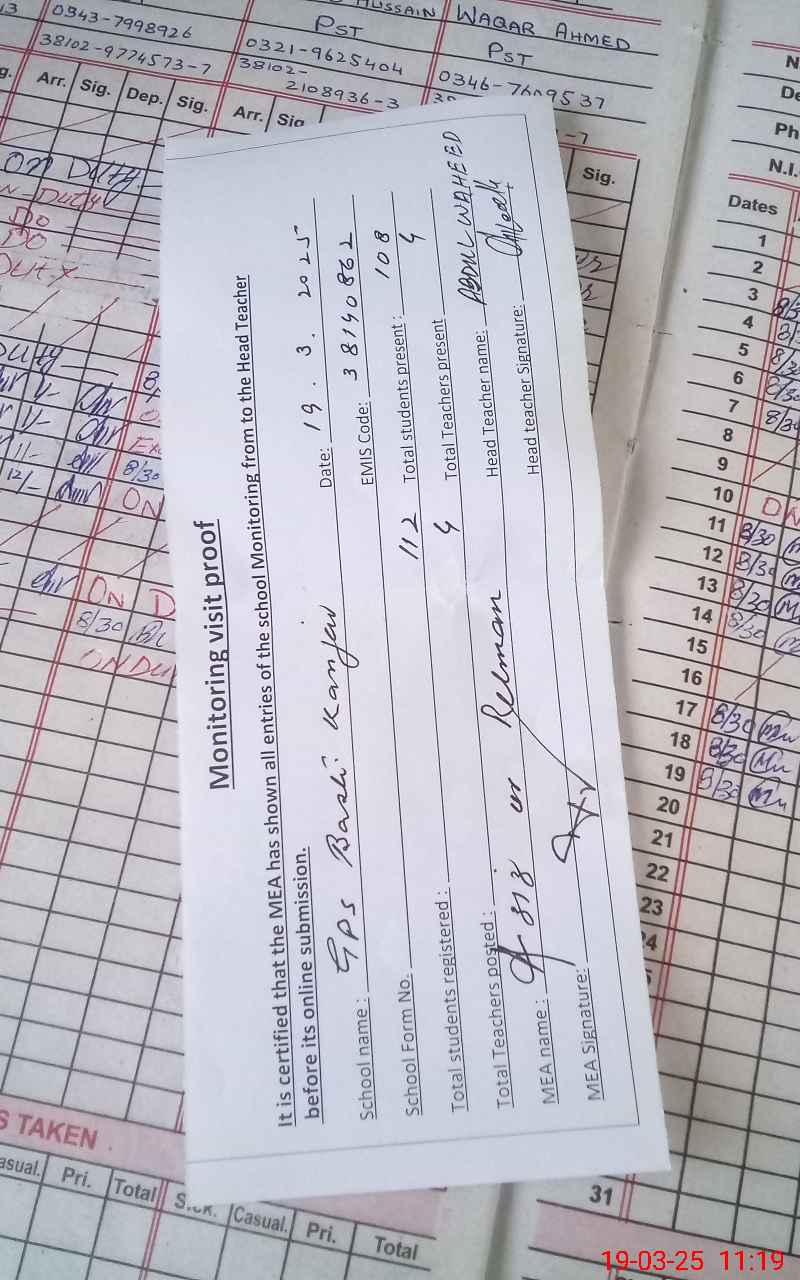 HUSSAIN WAQAR AHMED
0343-7998926 PST PST
38102-9774573-7 0321-9625404 0346-7609537
38102-2108936-3
Arr. Sig. Dep. Sig. Arr. Sig. Sig.
ON DUTY
DUTY
DO
DO
DUTY
Monitoring visit proof
It is certified that the MEA has shown all entries of the school Monitoring from to the Head Teacher
before its online submission.
School name : GPS Basti Kanjar Date: 19 . 3 . 2025
School Form No. EMIS Code: 38140862
Total students registered : 112 Total students present : 108
Total Teachers posted : 4 Total Teachers present 4
MEA name : Aziz ur Rehman Head Teacher name: ABDUL WAHEED
MEA Signature: Head teacher Signature:
8/30
ON
ON D
8/30
ON DUTY
Dates
1
2
3
4
5
6
7
8
9
10
11 8/30
12 8/30
13 8/30
14 8/30
15
16
17 8/30
18 8/30
19 8/30
20
21
22
23
31
TAKEN
Casual. Pri. Total Sick. Casual. Pri. Total
19-03-25 11:19